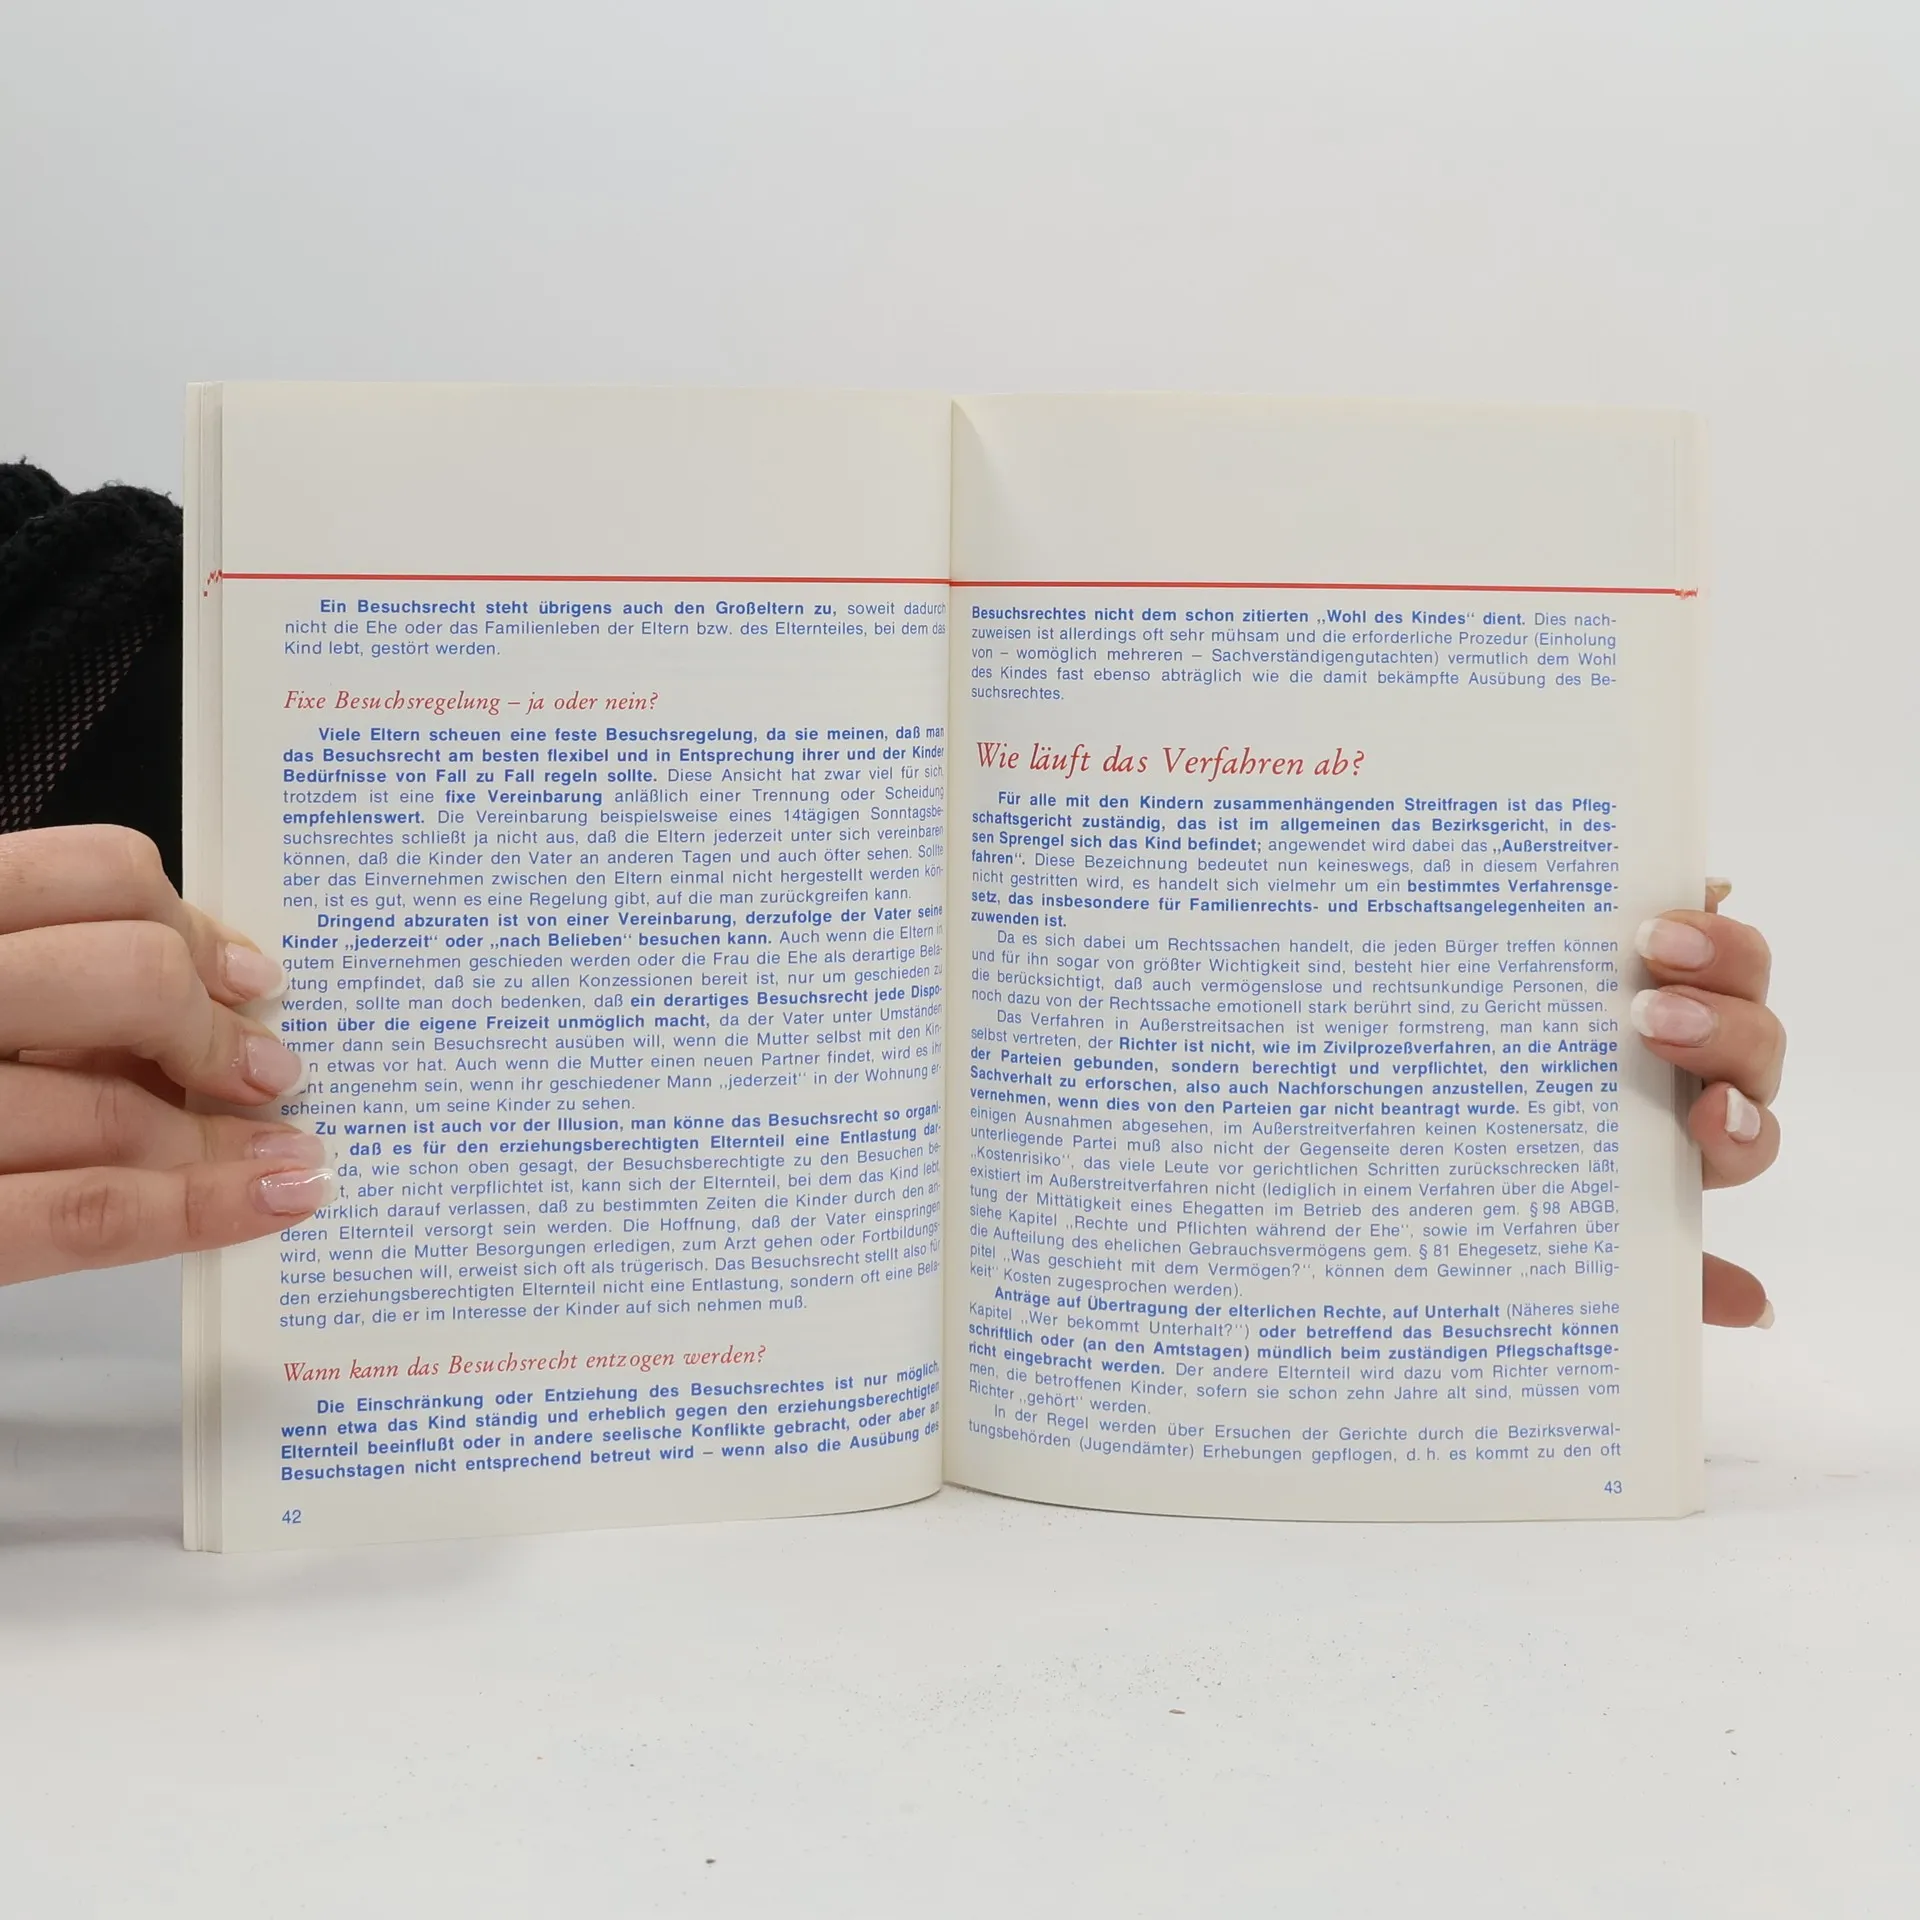 Ein Besuchsrecht steht übrigens auch den Großeltern zu, soweit dadurch
nicht die Ehe oder das Familienleben der Eltern bzw. des Elternteiles, bei dem das
Kind lebt, gestört werden.
Fixe Besuchsregelung – ja oder nein?
Viele Eltern scheuen eine feste Besuchsregelung, da sie meinen, daß man
das Besuchsrecht am besten flexibel und in Entsprechung ihrer und der Kinder
Bedürfnisse von Fall zu Fall regeln sollte. Diese Ansicht hat zwar viel für sich,
trotzdem ist eine fixe Vereinbarung anläßlich einer Trennung oder Scheidung
empfehlenswert. Die Vereinbarung beispielsweise eines 14tägigen Sonntagsbe-
suchsrechtes schließt ja nicht aus, daß die Eltern jederzeit unter sich vereinbaren
können, daß die Kinder den Vater an anderen Tagen und auch öfter sehen. Sollte
aber das Einvernehmen zwischen den Eltern einmal nicht hergestellt werden kön-
nen, ist es gut, wenn es eine Regelung gibt, auf die man zurückgreifen kann.
Dringend abzuraten ist von einer Vereinbarung, derzufolge der Vater seine
Kinder „jederzeit“ oder „nach Belieben“ besuchen kann. Auch wenn die Eltern in
gutem Einvernehmen geschieden werden oder die Frau die Ehe als derartige Bela-
stung empfindet, daß sie zu allen Konzessionen bereit ist, nur um geschieden zu
werden, sollte man doch bedenken, daß ein derartiges Besuchsrecht jede Dispo-
sition über die eigene Freizeit unmöglich macht, da der Vater unter Umständen
immer dann sein Besuchsrecht ausüben will, wenn die Mutter selbst mit den Kin-
n etwas vor hat. Auch wenn die Mutter einen neuen Partner findet, wird es ihr
nt angenehm sein, wenn ihr geschiedener Mann „jederzeit“ in der Wohnung er-
scheinen kann, um seine Kinder zu sehen.
Zu warnen ist auch vor der Illusion, man könne das Besuchsrecht so organi-
, daß es für den erziehungsberechtigten Elternteil eine Entlastung dar-
da, wie schon oben gesagt, der Besuchsberechtigte zu den Besuchen be-
t, aber nicht verpflichtet ist, kann sich der Elternteil, bei dem das Kind lebt,
wirklich darauf verlassen, daß zu bestimmten Zeiten die Kinder durch den an-
deren Elternteil versorgt sein werden. Die Hoffnung, daß der Vater einspringen
wird, wenn die Mutter Besorgungen erledigen, zum Arzt gehen oder Fortbildungs-
kurse besuchen will, erweist sich oft als trügerisch. Das Besuchsrecht stellt also für
den erziehungsberechtigten Elternteil nicht eine Entlastung, sondern oft eine Bela-
stung dar, die er im Interesse der Kinder auf sich nehmen muß.
Wann kann das Besuchsrecht entzogen werden?
Die Einschränkung oder Entziehung des Besuchsrechtes ist nur möglich,
wenn etwa das Kind ständig und erheblich gegen den erziehungsberechtigten
Elternteil beeinflußt oder in andere seelische Konflikte gebracht, oder aber an
Besuchstagen nicht entsprechend betreut wird – wenn also die Ausübung des
42
Besuchsrechtes nicht dem schon zitierten „Wohl des Kindes“ dient. Dies nach-
zuweisen ist allerdings oft sehr mühsam und die erforderliche Prozedur (Einholung
von – womöglich mehreren – Sachverständigengutachten) vermutlich dem Wohl
des Kindes fast ebenso abträglich wie die damit bekämpfte Ausübung des Be-
suchsrechtes.
Wie läuft das Verfahren ab?
Für alle mit den Kindern zusammenhängenden Streitfragen ist das Pfleg-
schaftsgericht zuständig, das ist im allgemeinen das Bezirksgericht, in des-
sen Sprengel sich das Kind befindet; angewendet wird dabei das „Außerstreitver-
fahren“. Diese Bezeichnung bedeutet nun keineswegs, daß in diesem Verfahren
nicht gestritten wird, es handelt sich vielmehr um ein bestimmtes Verfahrensge-
setz, das insbesondere für Familienrechts- und Erbschaftsangelegenheiten an-
zuwenden ist.
Da es sich dabei um Rechtssachen handelt, die jeden Bürger treffen können
und für ihn sogar von größter Wichtigkeit sind, besteht hier eine Verfahrensform,
die berücksichtigt, daß auch vermögenslose und rechtsunkundige Personen, die
noch dazu von der Rechtssache emotionell stark berührt sind, zu Gericht müssen.
Das Verfahren in Außerstreitsachen ist weniger formstreng, man kann sich
selbst vertreten, der Richter ist nicht, wie im Zivilprozeßverfahren, an die Anträge
der Parteien gebunden, sondern berechtigt und verpflichtet, den wirklichen
Sachverhalt zu erforschen, also auch Nachforschungen anzustellen, Zeugen zu
vernehmen, wenn dies von den Parteien gar nicht beantragt wurde. Es gibt, von
einigen Ausnahmen abgesehen, im Außerstreitverfahren keinen Kostenersatz, die
unterliegende Partei muß also nicht der Gegenseite deren Kosten ersetzen, das
„Kostenrisiko“, das viele Leute vor gerichtlichen Schritten zurückschrecken läßt,
existiert im Außerstreitverfahren nicht (lediglich in einem Verfahren über die Abgel-
tung der Mittätigkeit eines Ehegatten im Betrieb des anderen gem. § 98 ABGB,
siehe Kapitel „Rechte und Pflichten während der Ehe“, sowie im Verfahren über
die Aufteilung des ehelichen Gebrauchsvermögens gem. § 81 Ehegesetz, siehe Ka-
pitel „Was geschieht mit dem Vermögen?“, können dem Gewinner „nach Billig-
keit“ Kosten zugesprochen werden).
Anträge auf Übertragung der elterlichen Rechte, auf Unterhalt (Näheres siehe
Kapitel „Wer bekommt Unterhalt?“) oder betreffend das Besuchsrecht können
schriftlich oder (an den Amtstagen) mündlich beim zuständigen Pflegschaftsge-
richt eingebracht werden. Der andere Elternteil wird dazu vom Richter vernom-
men, die betroffenen Kinder, sofern sie schon zehn Jahre alt sind, müssen vom
Richter „gehört“ werden.
In der Regel werden über Ersuchen der Gerichte durch die Bezirksverwal-
tungsbehörden (Jugendämter) Erhebungen gepflogen, d. h. es kommt zu den oft
43